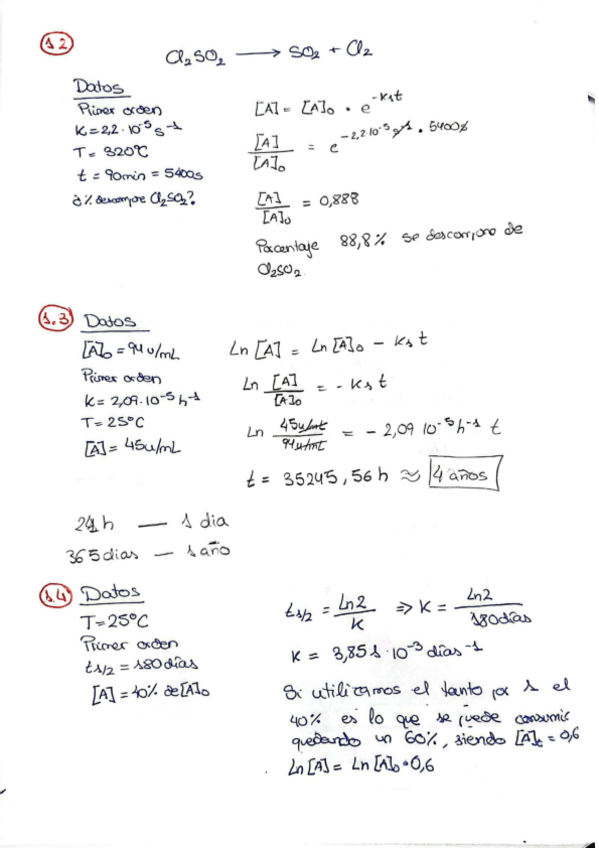 1.2
Cl₂SO₂ ⟶ SO₂ + Cl₂
Datos
Primer orden
K = 2,2·10⁻⁵ s⁻¹
T = 320ºC
t = 90min = 5400s
¿% descompne Cl₂SO₂?
[A] = [A]₀ · e^(-K₁t)
[A]/[A]₀ = e^(-2,2·10⁻⁵ s⁻¹ · 5400s)
[A]/[A]₀ = 0,888
Porcentaje 88,8% se descompone de
Cl₂SO₂.
1.3 Datos
[A]₀ = 94u/mL
Primer orden
K = 2,09·10⁻⁵ h⁻¹
T = 25ºC
[A] = 45u/mL
Ln [A] = Ln [A]₀ - K₁ t
Ln [A]/[A]₀ = - K₁ t
Ln 45u/mL / 94u/mL = - 2,09 10⁻⁵ h⁻¹ t
t = 35245,56 h ≈ 4 años
24h — 1 dia
365 dias — 1 año
1.4 Datos
T = 25ºC
Primer orden
t1/2 = 180 días
[A] = 40% de [A]₀
t1/2 = Ln2/K ⇒ K = Ln2/180días
K = 3,851·10⁻³ días⁻¹
Si utilizamos el tanto por 1 el
40% es lo que se puede consumir
quedando un 60%, siendo [A]t = 0,6
Ln [A] = Ln [A]₀·0,6